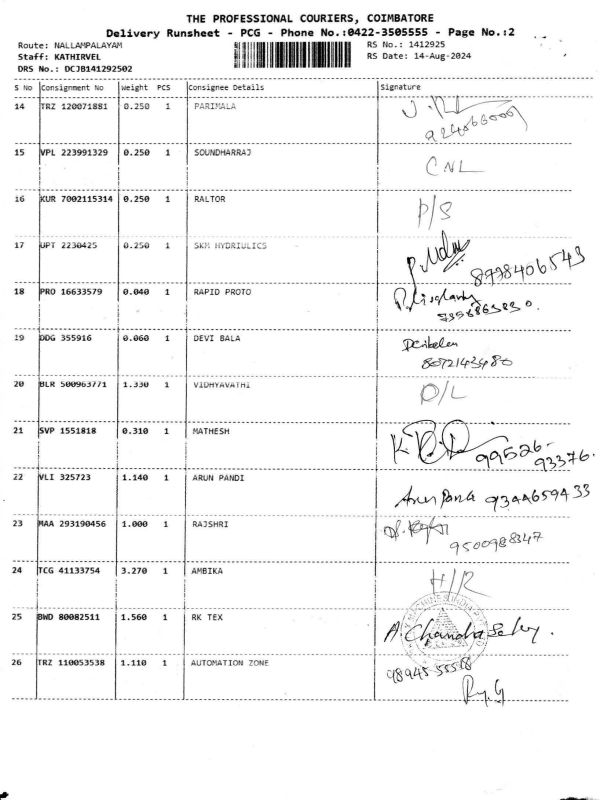 THE PROFESSIONAL COURIERS, COIMBATORE
Delivery Runsheet - PCG - Phone No.:0422-3505555 - Page No.:2
Route: NALLAMPALAYAM RS No.: 1412925
Staff: KATHIRVEL RS Date: 14-Aug-2024
DRS No.: DCJB141292502
S No Consignment No Weight PCS Consignee Details Signature
14 TRZ 120071881 0.250 1 PARIMALA
15 VPL 223991329 0.250 1 SOUNDHARRAJ CNL
16 KUR 7002115314 0.250 1 RALTOR P/S
17 UPT 2230425 0.250 1 SKM HYDRIULICS
8978406543
18 PRO 16633579 0.040 1 RAPID PROTO
19 DDG 355916 0.060 1 DEVI BALA
8072143480
20 BLR 500963771 1.330 1 VIDHYAVATHI D/L
21 SVP 1551818 0.310 1 MATHESH
99526-
93376.
22 VLI 325723 1.140 1 ARUN PANDI
9344659433
23 MAA 293190456 1.000 1 RAJSHRI
9500988347
24 TCG 41133754 3.270 1 AMBIKA H/R
25 BWD 80082511 1.560 1 RK TEX A. Chandra Sekar.
26 TRZ 110053538 1.110 1 AUTOMATION ZONE 98945 55558